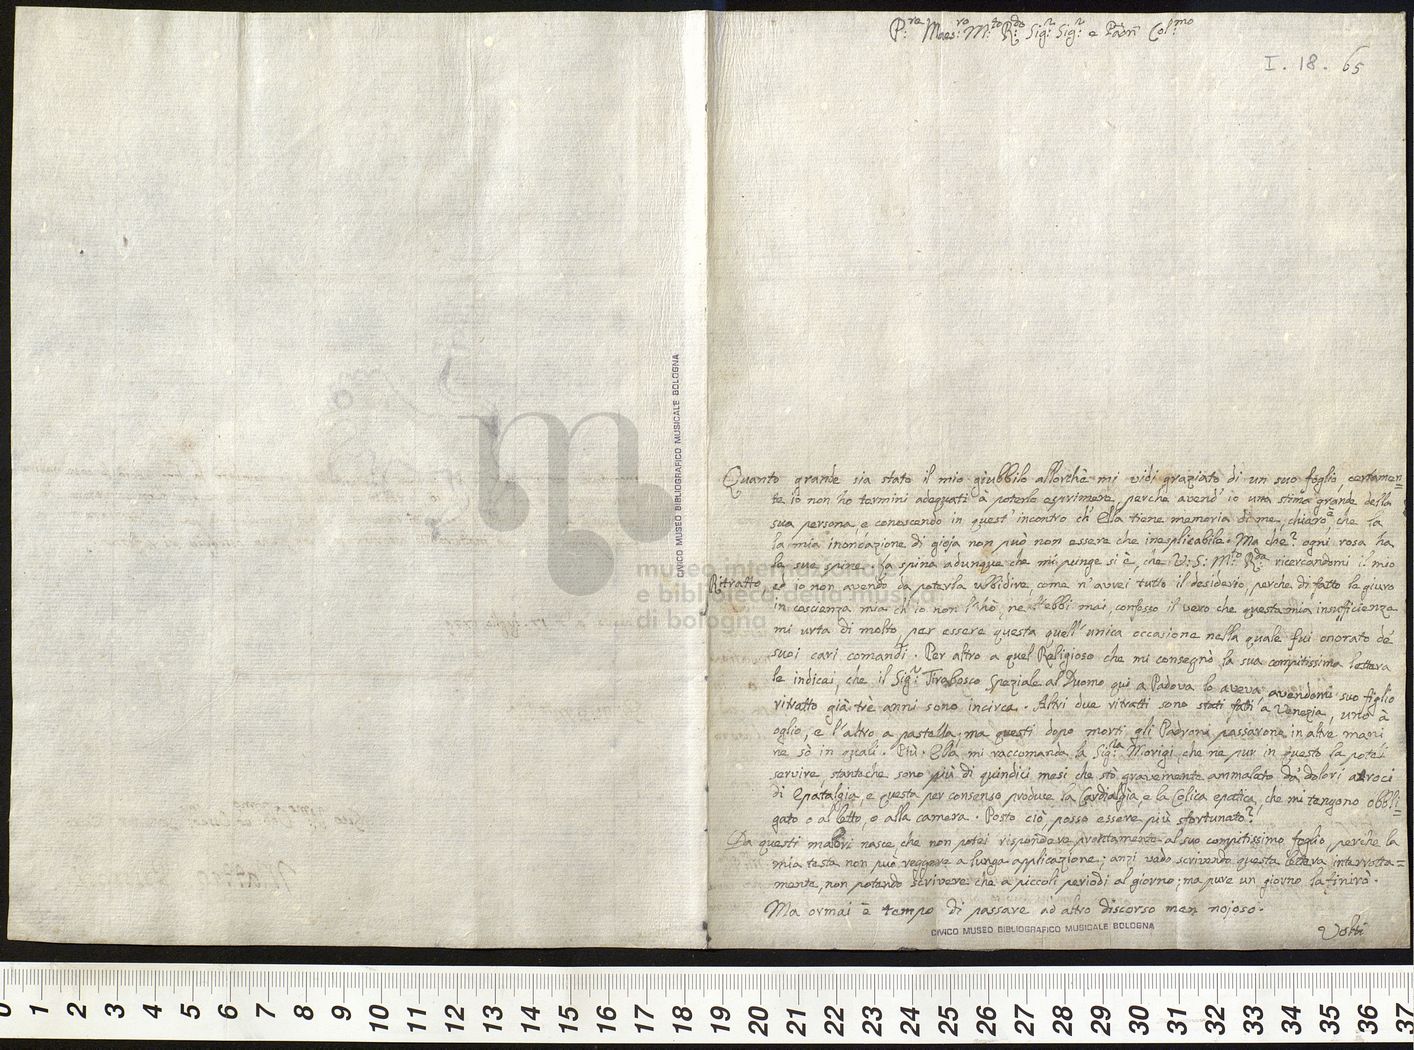 P:re Maes:ro M:to R:do Sig:r Sig:r e Padn Col:mo
I. 18. 65
Quanto grande sia stato il mio giubbilo allorchè mi vidi graziato di un suo foglio certamen=
te io non ho termini adeguati à poterlo esprimere, perche avend' io una stima grande della
sua persona, e conoscendo in quest' incontro ch' Ella tiene memoria di me, chiaro è che la
la mia inondazione di gioja non può non essere che inesplicabile. Ma che? ogni rosa ha
le sue spine. La spina adunque che mi punge si è, che V: S: M:to R:da ricercandomi il mio
Ritratto, ed io non avendo da poterla ubbidire, come n' avrei tutto il desiderio, perche di fatto la giuro
in coscienza mia ch' io non l' hò, ne l' ebbi mai, confesso il vero che questa mia insufficienza
mi urta di molto, per essere questa quell' unica occasione nella quale fui onorato de'
suoi cari comandi. Per altro a quel Religioso che mi consegnò la sua compitissima lettera
le indicai, che il Sig:r Tirabosco Speziale al Duomo quì a Padova lo aveva avendomi suo figlio
ritratto già trè anni sono incirca. Altri due ritratti sono stati fati a Venezia, uno à
oglio, e l' altro a pastella; ma questi dopo morti gli Padroni passarono in altre mani
ne sò in quali. Più. Ella mi raccomanda la Sig:ra Morigi, che ne pur in questo la potei
servire, stanteche sono più di quindici mesi che stò gravemente ammalato da dolori atroci
di Epatalgia, e questa per consenso produce la Cardialgia e la Colica epatica, che mi tengono obbli=
gato o al letto, o alla camera. Posto ciò, posso essere più sfortunato?
Da questi malori nasce, che non potei rispondere prontamente al suo compitissimo foglio, perche la
mia testa non può reggere a lunga applicazione; anzi vado scrivendo questa lettera interrotta=
mente, non potendo scrivere che a piccoli periodi al giorno; ma pure un giorno la finirò.
Ma ormai è tempo di passare ad altro discorso men nojoso.
CIVICO MUSEO BIBLIOGRAFICO MUSICALE BOLOGNA
CIVICO MUSEO BIBLIOGRAFICO MUSICALE BOLOGNA
museo internazionale
e biblioteca della musica
di bologna
0 1 2 3 4 5 6 7 8 9 10 11 12 13 14 15 16 17 18 19 20 21 22 23 24 25 26 27 28 29 30 31 32 33 34 35 36 37